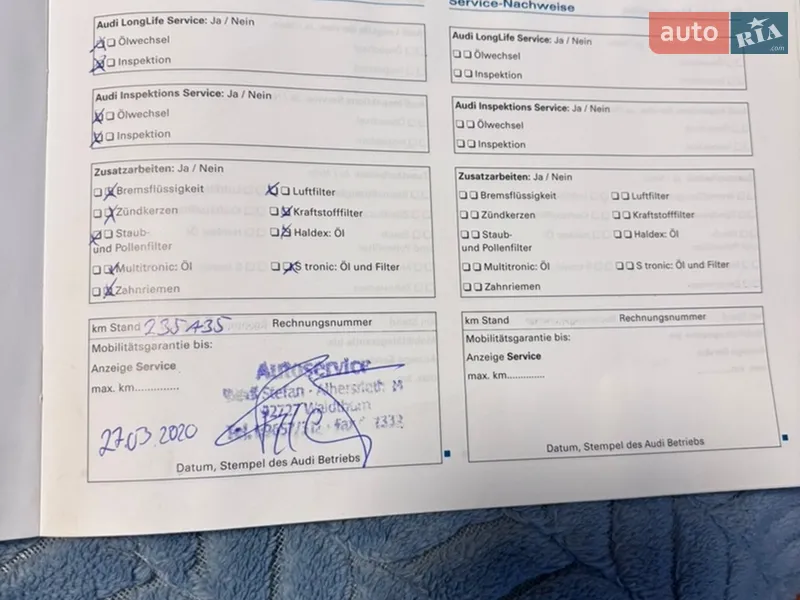 Service-Nachweise
auto RIA .com
Audi LongLife Service: Ja / Nein
Ölwechsel
Inspektion
Audi Inspektions Service: Ja / Nein
Ölwechsel
Inspektion
Zusatzarbeiten: Ja / Nein
Bremsflüssigkeit Luftfilter
Zündkerzen Kraftstofffilter
Staub- Haldex: Öl
und Pollenfilter
Multitronic: Öl S tronic: Öl und Filter
Zahnriemen
km Stand 235A35 Rechnungsnummer
Mobilitätsgarantie bis:
Anzeige Service
max. km..............
Autoservice
Stefan - Albersrieth M
92727 Waldthurn
Tel. Fax 7332
27.03.2020
Datum, Stempel des Audi Betriebs
Audi LongLife Service: Ja / Nein
Ölwechsel
Inspektion
Audi Inspektions Service: Ja / Nein
Ölwechsel
Inspektion
Zusatzarbeiten: Ja / Nein
Bremsflüssigkeit Luftfilter
Zündkerzen Kraftstofffilter
Staub- Haldex: Öl
und Pollenfilter
Multitronic: Öl S tronic: Öl und Filter
Zahnriemen
km Stand Rechnungsnummer
Mobilitätsgarantie bis:
Anzeige Service
max. km............
Datum, Stempel des Audi Betriebs